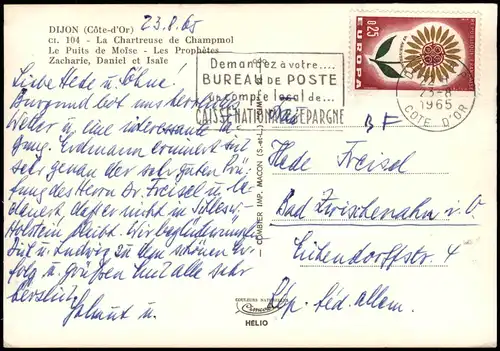 DIJON (Côte-d'Or)
ct. 104 - La Chartreuse de Champmol
Le Puits de Moïse - Les Prophètes
Zacharie, Daniel et Isaïe
23.8.65
Liebe Hede u. Söhne!
Burgund hat uns herrliches
Wetter u. eine interessante Ta-
gung. Erdmann erinnert sich
sehr genau der sehr guten Prü-
fung des Herrn Dr. Freisel u. be-
dauert, daß er nicht in Schlesw.
Holstein bleibt. Wir beglückwünschen
Dich u. Ludwig zu dem schönen Er-
folg u. grüßen Euch alle sehr
herzlich
Helmut u.
Demandez à votre....
BUREAU DE POSTE
un compte local de...
CAISSE NATIONALE D'EPARGNE
0,25
EUROPA
23-8
1965
COTE D'OR
BF
Hede Freisel
Bad Zwischenahn i. O.
Eichendorffstr. 4
Rép. féd. allem.
— COMBIER IMP. MACON (S.-&-L.)
COULEURS NATURELLES
HELIO